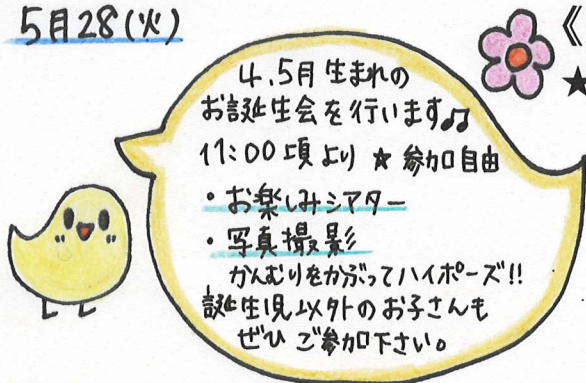 5月28(火)
《
★
4.5月生まれの
お誕生会を行います♫
11:00頃より ★ 参加自由
・お楽しみシアター
・写真撮影
かんむりをかぶってハイポーズ!!
誕生児以外のお子さんも
ぜひ ご参加下さい。